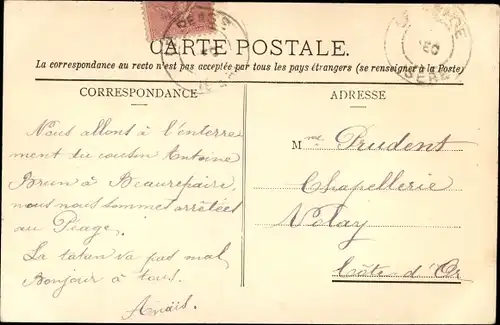 CARTE POSTALE.
La correspondance au recto n'est pas acceptée par tous les pays étrangers (se renseigner à la Poste)
CORRESPONDANCE
Nous allons à l'enterre
ment du cousin Antoine
Brun à Beaurepaire,
nous nous sommes arrêtées
au Péage.
La tatan va pas mal
Bonjour à tous.
Anaïs.
ADRESSE
Mme Prudent
Chapellerie
Nolay
Côte-d'Or
ISERE